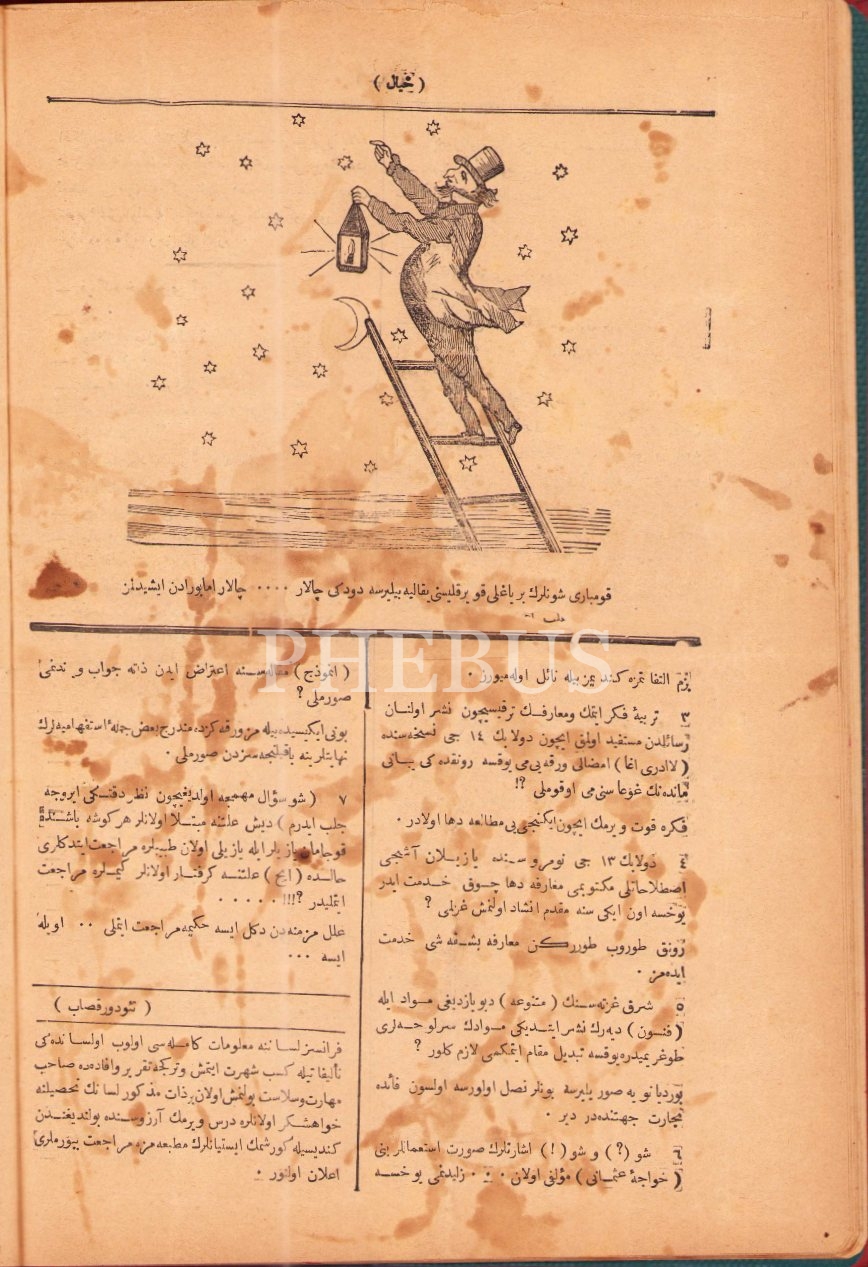 ( خيال )
قومباری شونلرك بر ياغلی قويرقليسنی يقاليه بيليرسه دودكی چالار .... چالار اما بورادن ايشيدلمز
PHEBUS
بزم التفاتمزه كنديمز بيله نائل اوله ميورز .
٣ تربيهٔ فكر ايتمك ومعارفك ترقيسيچون نشر اولنان
رسائلدن مستفيد اولمق ايچون دولابك ١٤ جی نسخه سنده
( لاادری اغا ) امضالی ورقه يی می يوقسه رونقده كی
غوغاسنی می اوقوملی ؟!
فكره قوت ويرمك ايچون ايكينجی يی مطالعه دها اولادر .
٤ دولابك ١٣ جی نومروسنده يازيلان آشيجی
اصطلاحاتلی مكتوبمی معارفه دها چوق خدمت ايدر
يوخسه اون ايكی سنه مقدم انشاد اولنمش غزلمی ؟
رونق طوروب طورركن معارفه بشقه شی خدمت
ايده مز .
٥ شرق غزته سنك ( متنوعه ) ديو يازديغی مواد ايله
( فنون ) ديه رك نشر ايتديكی موادك سرلوحه لری
طوغريميدره يوقسه تبديل مقام ايتمكمی لازم كلور ؟
بورديانويه صور يليرسه بونلر نصل اولورسه اولسون فائده
تجارت جهتنده در دير .
٦ شو (؟) و شو (!) اشارتلرك صورت استعماللرينی
( خواجهٔ عثمانی ) مؤلفی اولان . . . يوخسه
( انموذج ) مقاله سنه اعتراض ايدن ذاته جواب ويرندنمی
صورملی ؟
بونی ايكيسيده بيله مز ورقه كزده مندرج بعض جملهٔ استفهاميه لرك
نهايتلرينه صورملی .
٧ ( شو سؤال مهمجه اولديغيچون نظر دقتكی ايروجه
جلب ايدرم ) ديش علتنه مبتلا اولانلر هر كوشه باشنده
قوجامان يازيلر ايله يازيلی اولان طبيبلره مراجعت ايتدكلری
حالده ( ايچ ) علتنه كرفتار اولانلر كيملره مراجعت
ايتمليدر ؟!!! . . . . .
علل مزمنه دن دكل ايسه حكيمه مراجعت ايتملی .. اويله
ايسه ...
( تئودور قصاب )
فرانسز لساننه معلومات كامله سی اولوب اولساندهكی
تأليفاتيله كسب شهرت ايتمش وتركجه تقرير وافاده ده صاحب
مهارت وسلاست بولنمش اولان بر ذات مذكور لسانك تحصيلنه
خواهشكر اولانلره درس ويرمك آرزوسنده بولنديغندن
كنديسيله كورشمك ايستيانلرك مطبعه مزه مراجعت بيورملری
اعلان اولنور .